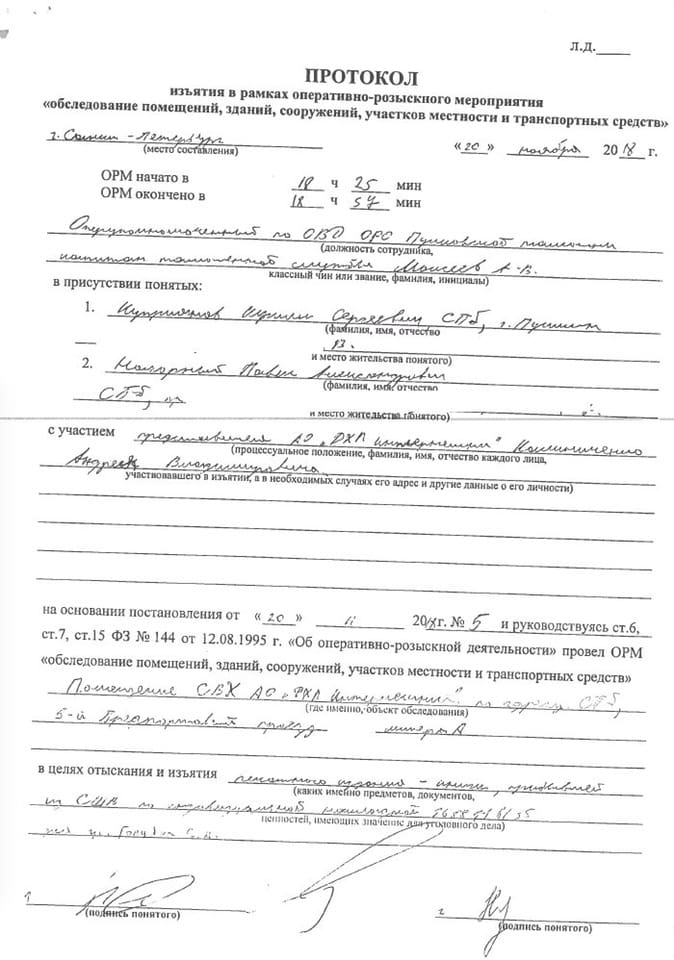 Л.Д.
ПРОТОКОЛ
изъятия в рамках оперативно-розыскного мероприятия
«обследование помещений, зданий, сооружений, участков местности и транспортных средств»
г. Санкт-Петербург «20» ноября 2018 г.
(место составления)
ОРМ начато в 18 ч 25 мин
ОРМ окончено в 18 ч 57 мин
Оперуполномоченный по ОВД ОРО Пулковской таможни
(должность сотрудника,
капитан таможенной службы Моисеев А.В.
классный чин или звание, фамилия, инициалы)
в присутствии понятых:
1. Куприянов Кирилл Сергеевич СПб, г. Пушкин
(фамилия, имя, отчество
и место жительства понятого)
2. Нагорный Павел Александрович
(фамилия, имя, отчество
СПб,
и место жительства понятого)
с участием представителя АО „ДХЛ Интернешнл" Калиниченко
(процессуальное положение, фамилия, имя, отчество каждого лица,
Андрея Владимировича
участвовавшего в изъятии, а в необходимых случаях его адрес и другие данные о его личности)
на основании постановления от «20» 11 2018г. № 5 и руководствуясь ст.6,
ст.7, ст.15 ФЗ № 144 от 12.08.1995 г. «Об оперативно-розыскной деятельности» провел ОРМ
«обследование помещений, зданий, сооружений, участков местности и транспортных средств»
Помещение СВХ АО „ДХЛ Интернешнл" по адресу СПб,
(где именно, объект обследования)
5-й Предпортовый проезд литера А
в целях отыскания и изъятия печатного издания - книги, прибывшей
(каких именно предметов, документов,
из США по индивидуальной накладной
ценностей, имеющих значение для уголовного дела)
1 2
(подпись понятого) (подпись понятого)